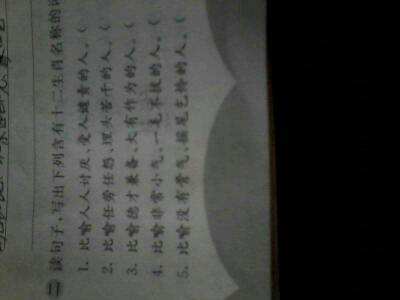 二 读句子，写出下列含有十二生肖名称的词
1. 比喻人人讨厌、受人谴责的人。（
2. 比喻任劳任怨、埋头苦干的人。（
3. 比喻德才兼备、大有作为的人。（
4. 比喻非常小气、一毛不拔的人。（
5. 比喻没有骨气、摇尾乞怜的人。（